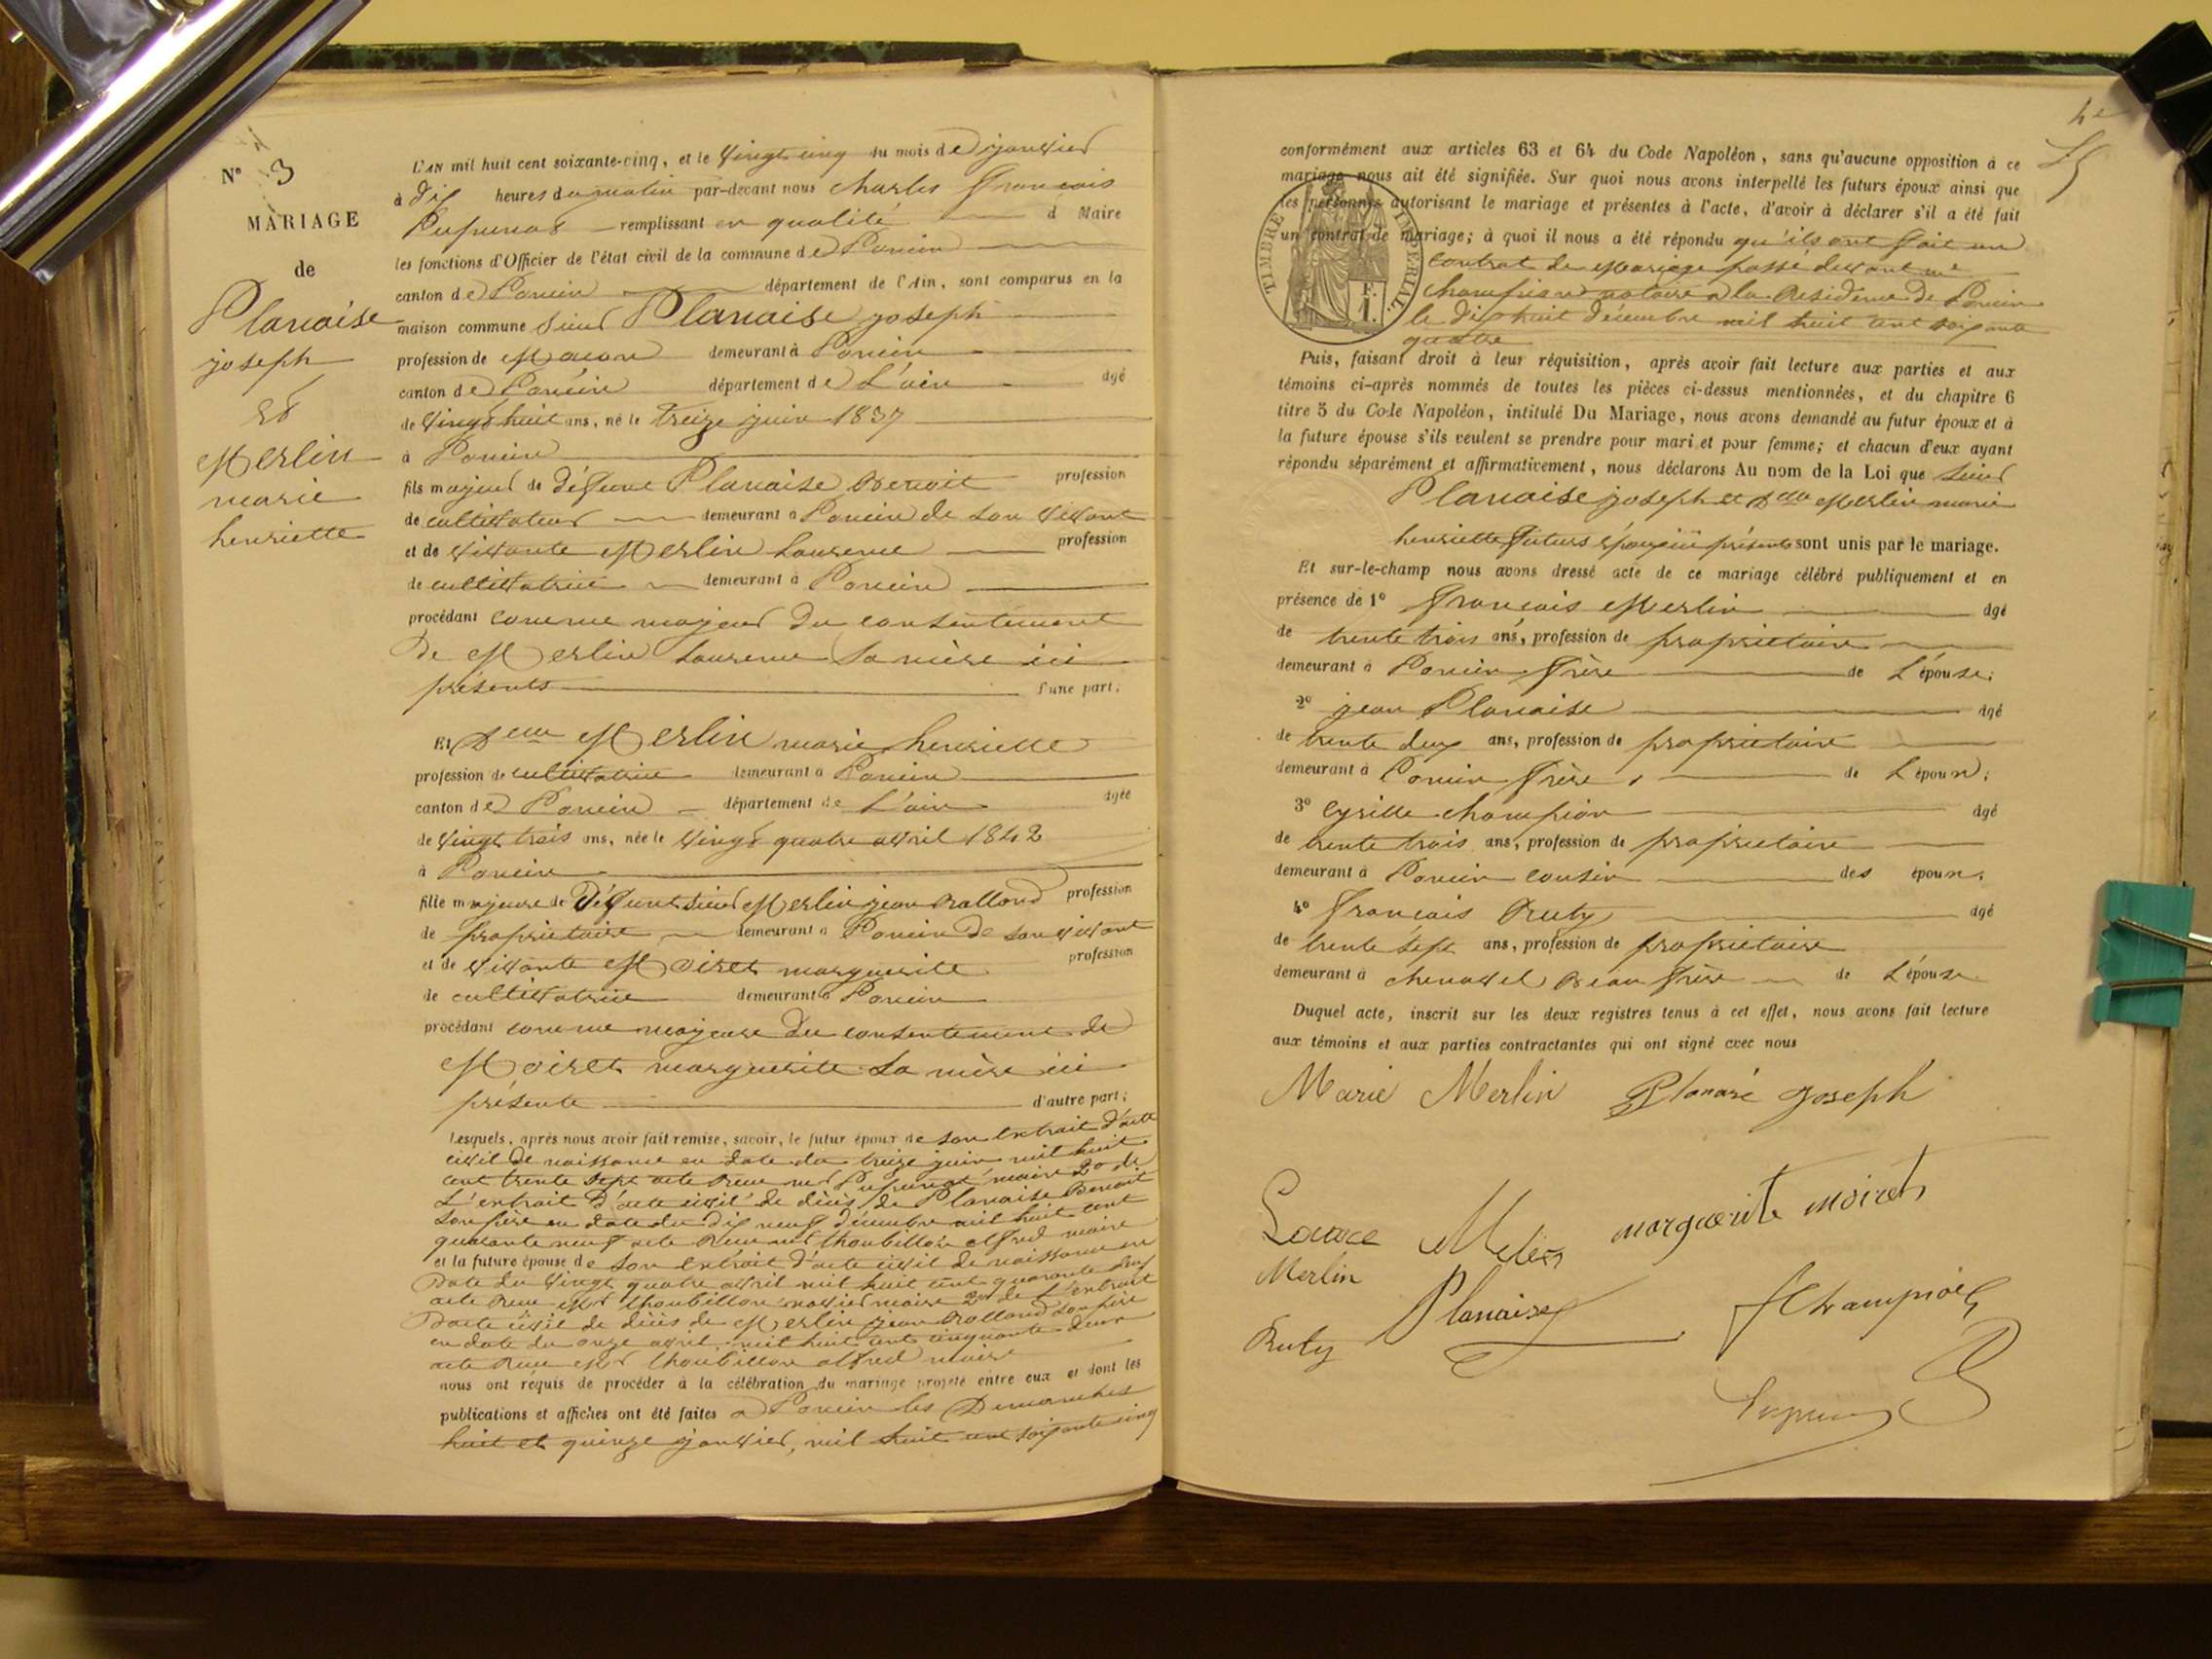 N° 3
MARIAGE
de
Planaise
joseph
et
Merlin
marie
henriette
L'AN mil huit cent soixante-cinq, et le vingt cinq du mois de janvier
à dix heures du matin par-devant nous charles francois
Pupunat remplissant en qualité d Maire
les fonctions d'Officier de l'état civil de la commune de Poncin
canton de Poncin département de l'Ain, sont comparus en la
maison commune Sieur Planaise joseph
profession de Macon demeurant à Poncin
canton de Poncin département de L'ain âgé
de vingt huit ans, né le treize juin 1837
à Poncin
fils majeur de défunt Planaise Benoit profession
de cultivateur demeurant à Poncin de son vivant
et de vivante Merlin Laurence profession
de cultivatrice demeurant à Poncin
procédant comme majeur du consentement
de Merlin Laurence sa mère ici
présente d'une part;
Et Delle Merlin marie henriette
profession de cultivatrice demeurant à Poncin
canton de Poncin département de L'ain âgée
de vingt trois ans, née le vingt quatre avril 1842
à Poncin
fille majeure de défunt sieur Merlin jean Rolland profession
de propriétaire demeurant à Poncin de son vivant
et de vivante Moiret marguerite profession
de cultivatrice demeurant à Poncin
procédant comme majeure du consentement de
Moiret marguerite sa mère ici
présente d'autre part;
Lesquels, après nous avoir fait remise, savoir, le futur époux de son extrait d'acte
civil de naissance en date du treize juin mil huit
cent trente sept acte Reçu mr Pupunat maire 2° de
L'extrait d'acte civil de décès de Planaise Benoit
son père en date du dix neuf décembre mil huit cent
quarante neuf acte Reçu mr Choubillon alfred maire
et la future épouse de son extrait d'acte civil de naissance en
date du vingt quatre avril mil huit cent quarante deux
acte Reçu Mr Choubillon maire 2° de L'extrait
d'acte civil de décès de Merlin jean Rolland son père
en date du onze avril mil huit cent cinquante deux
acte Reçu Mr Choubillon alfred maire
nous ont requis de procéder à la célébration du mariage projeté entre eux et dont les
publications et affiches ont été faites à Poncin les Dimanches
huit et quinze janvier, mil huit cent soixante cinq
conformément aux articles 63 et 64 du Code Napoléon, sans qu'aucune opposition à ce
mariage nous ait été signifiée. Sur quoi nous avons interpellé les futurs époux ainsi que
les personnes autorisant le mariage et présentes à l'acte, d'avoir à déclarer s'il a été fait
un contrat de mariage; à quoi il nous a été répondu qu'ils ont fait un
contrat de Mariage passé devant me
notaire a la Residence de Poncin
le dix huit décembre mil huit cent soixante
quatre
TIMBRE IMPÉRIAL
F.
1.
Puis, faisant droit à leur réquisition, après avoir fait lecture aux parties et aux
témoins ci-après nommés de toutes les pièces ci-dessus mentionnées, et du chapitre 6
titre 5 du Code Napoléon, intitulé Du Mariage, nous avons demandé au futur époux et à
la future épouse s'ils veulent se prendre pour mari et pour femme; et chacun d'eux ayant
répondu séparément et affirmativement, nous déclarons Au nom de la Loi que Sieur
Planaise joseph et Delle Merlin marie
henriette futurs époux ici présents sont unis par le mariage.
Et sur-le-champ nous avons dressé acte de ce mariage célébré publiquement et en
présence de 1° francois Merlin âgé
de trente trois ans, profession de propriétaire
demeurant à Poncin frère de L'épouse;
2° jean Planaise âgé
de trente deux ans, profession de propriétaire
demeurant à Poncin frère, de L'époux;
3° cyrille champion âgé
de trente trois ans, profession de propriétaire
demeurant à Poncin cousin des époux;
4° francois Ruty âgé
de trente sept ans, profession de propriétaire
demeurant à chenavel Beau frère de L'épouse
Duquel acte, inscrit sur les deux registres tenus à cet effet, nous avons fait lecture
aux témoins et aux parties contractantes qui ont signé avec nous
Marie Merlin Planaise Joseph
Merlin marguerite moiret
Merlin Planaise Champion
Ruty